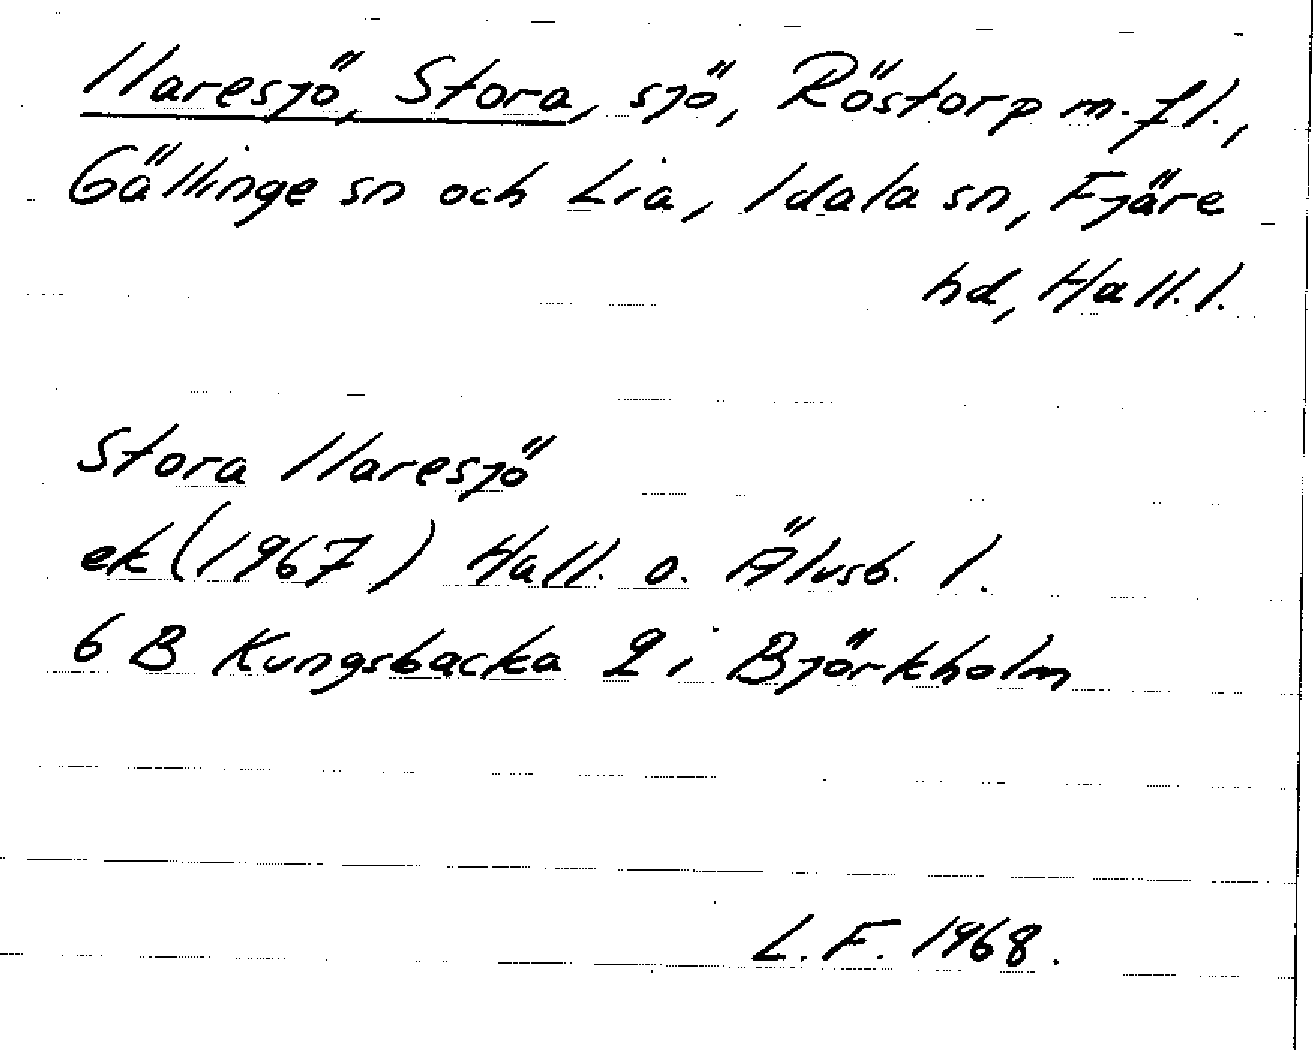 Ilaresjö, Stora, sjö, Röstorp m.fl.,
Gällinge sn och Lia, Idala sn, Fjäre
hd, Hall. l.
Stora Ilaresjö
ek (1967) Hall. o. Älvsb. l.
6 B Kungsbacka 2 i Björkholm
L. F. 1968.